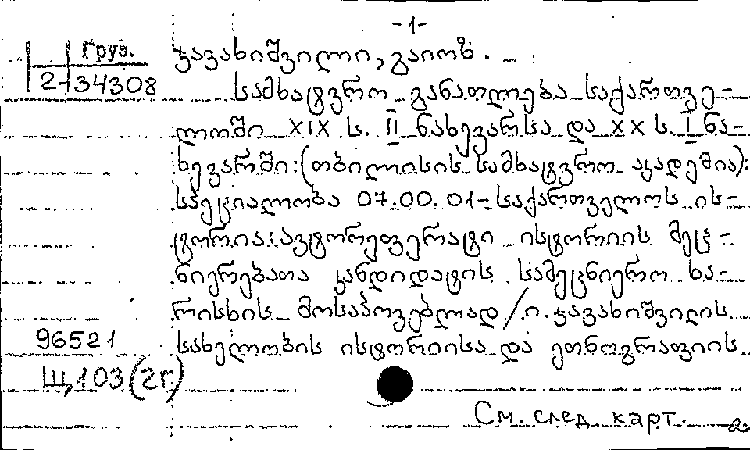 -1-
Груз.
2-34308
ჯავახიშვილი, გაიოზ.
სამხატვრო განათლება საქართვე-
ლოში XIX ს. II ნახევარსა და XX ს. I ნა-
ხევარში: (თბილისის სამხატვრო აკადემია):
სპეციალობა 07.00.01-საქართველოს ის-
ტორია: ავტორეფერატი ისტორიის მეც-
ნიერებათა კანდიდატის სამეცნიერო ხა-
რისხის მოსაპოვებლად / ი. ჯავახიშვილის
96521 სახელობის ისტორიისა და ეთნოგრაფიის
Щ,103(2г)
См. след. карт.